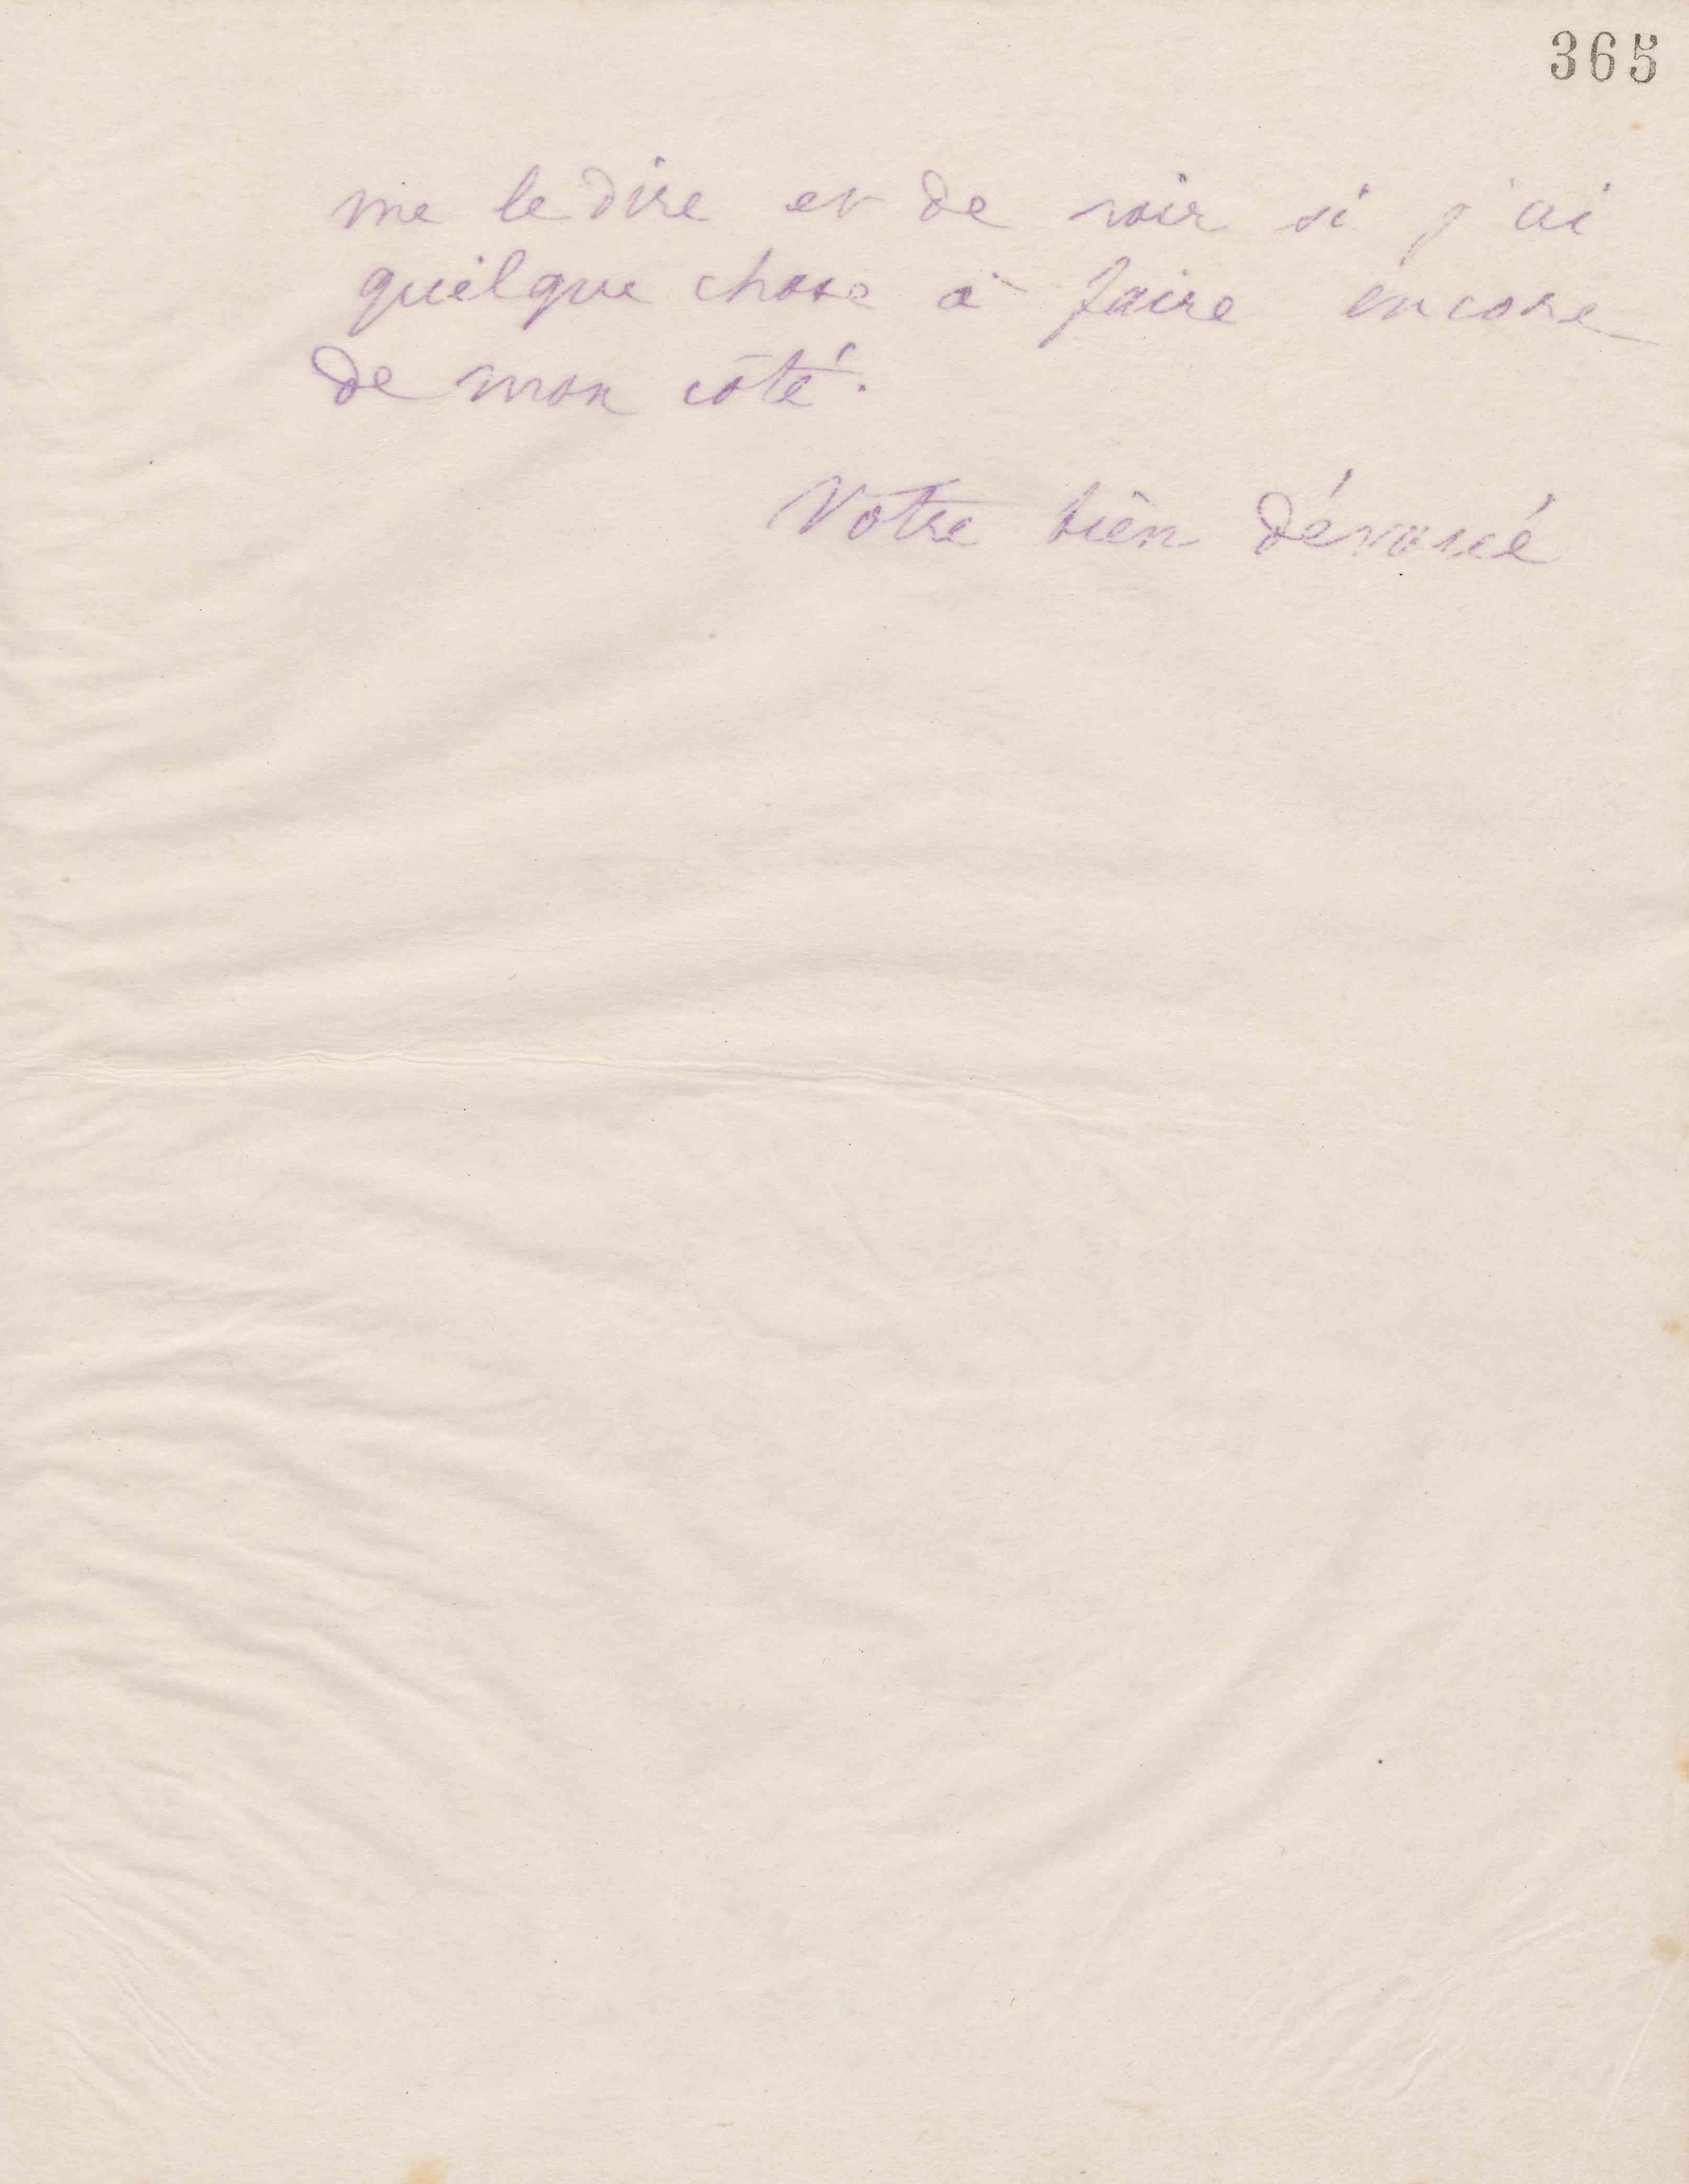 365
me le dire et de voir si j'ai
quelque chose à faire encore
de mon côté.
Votre bien dévoué